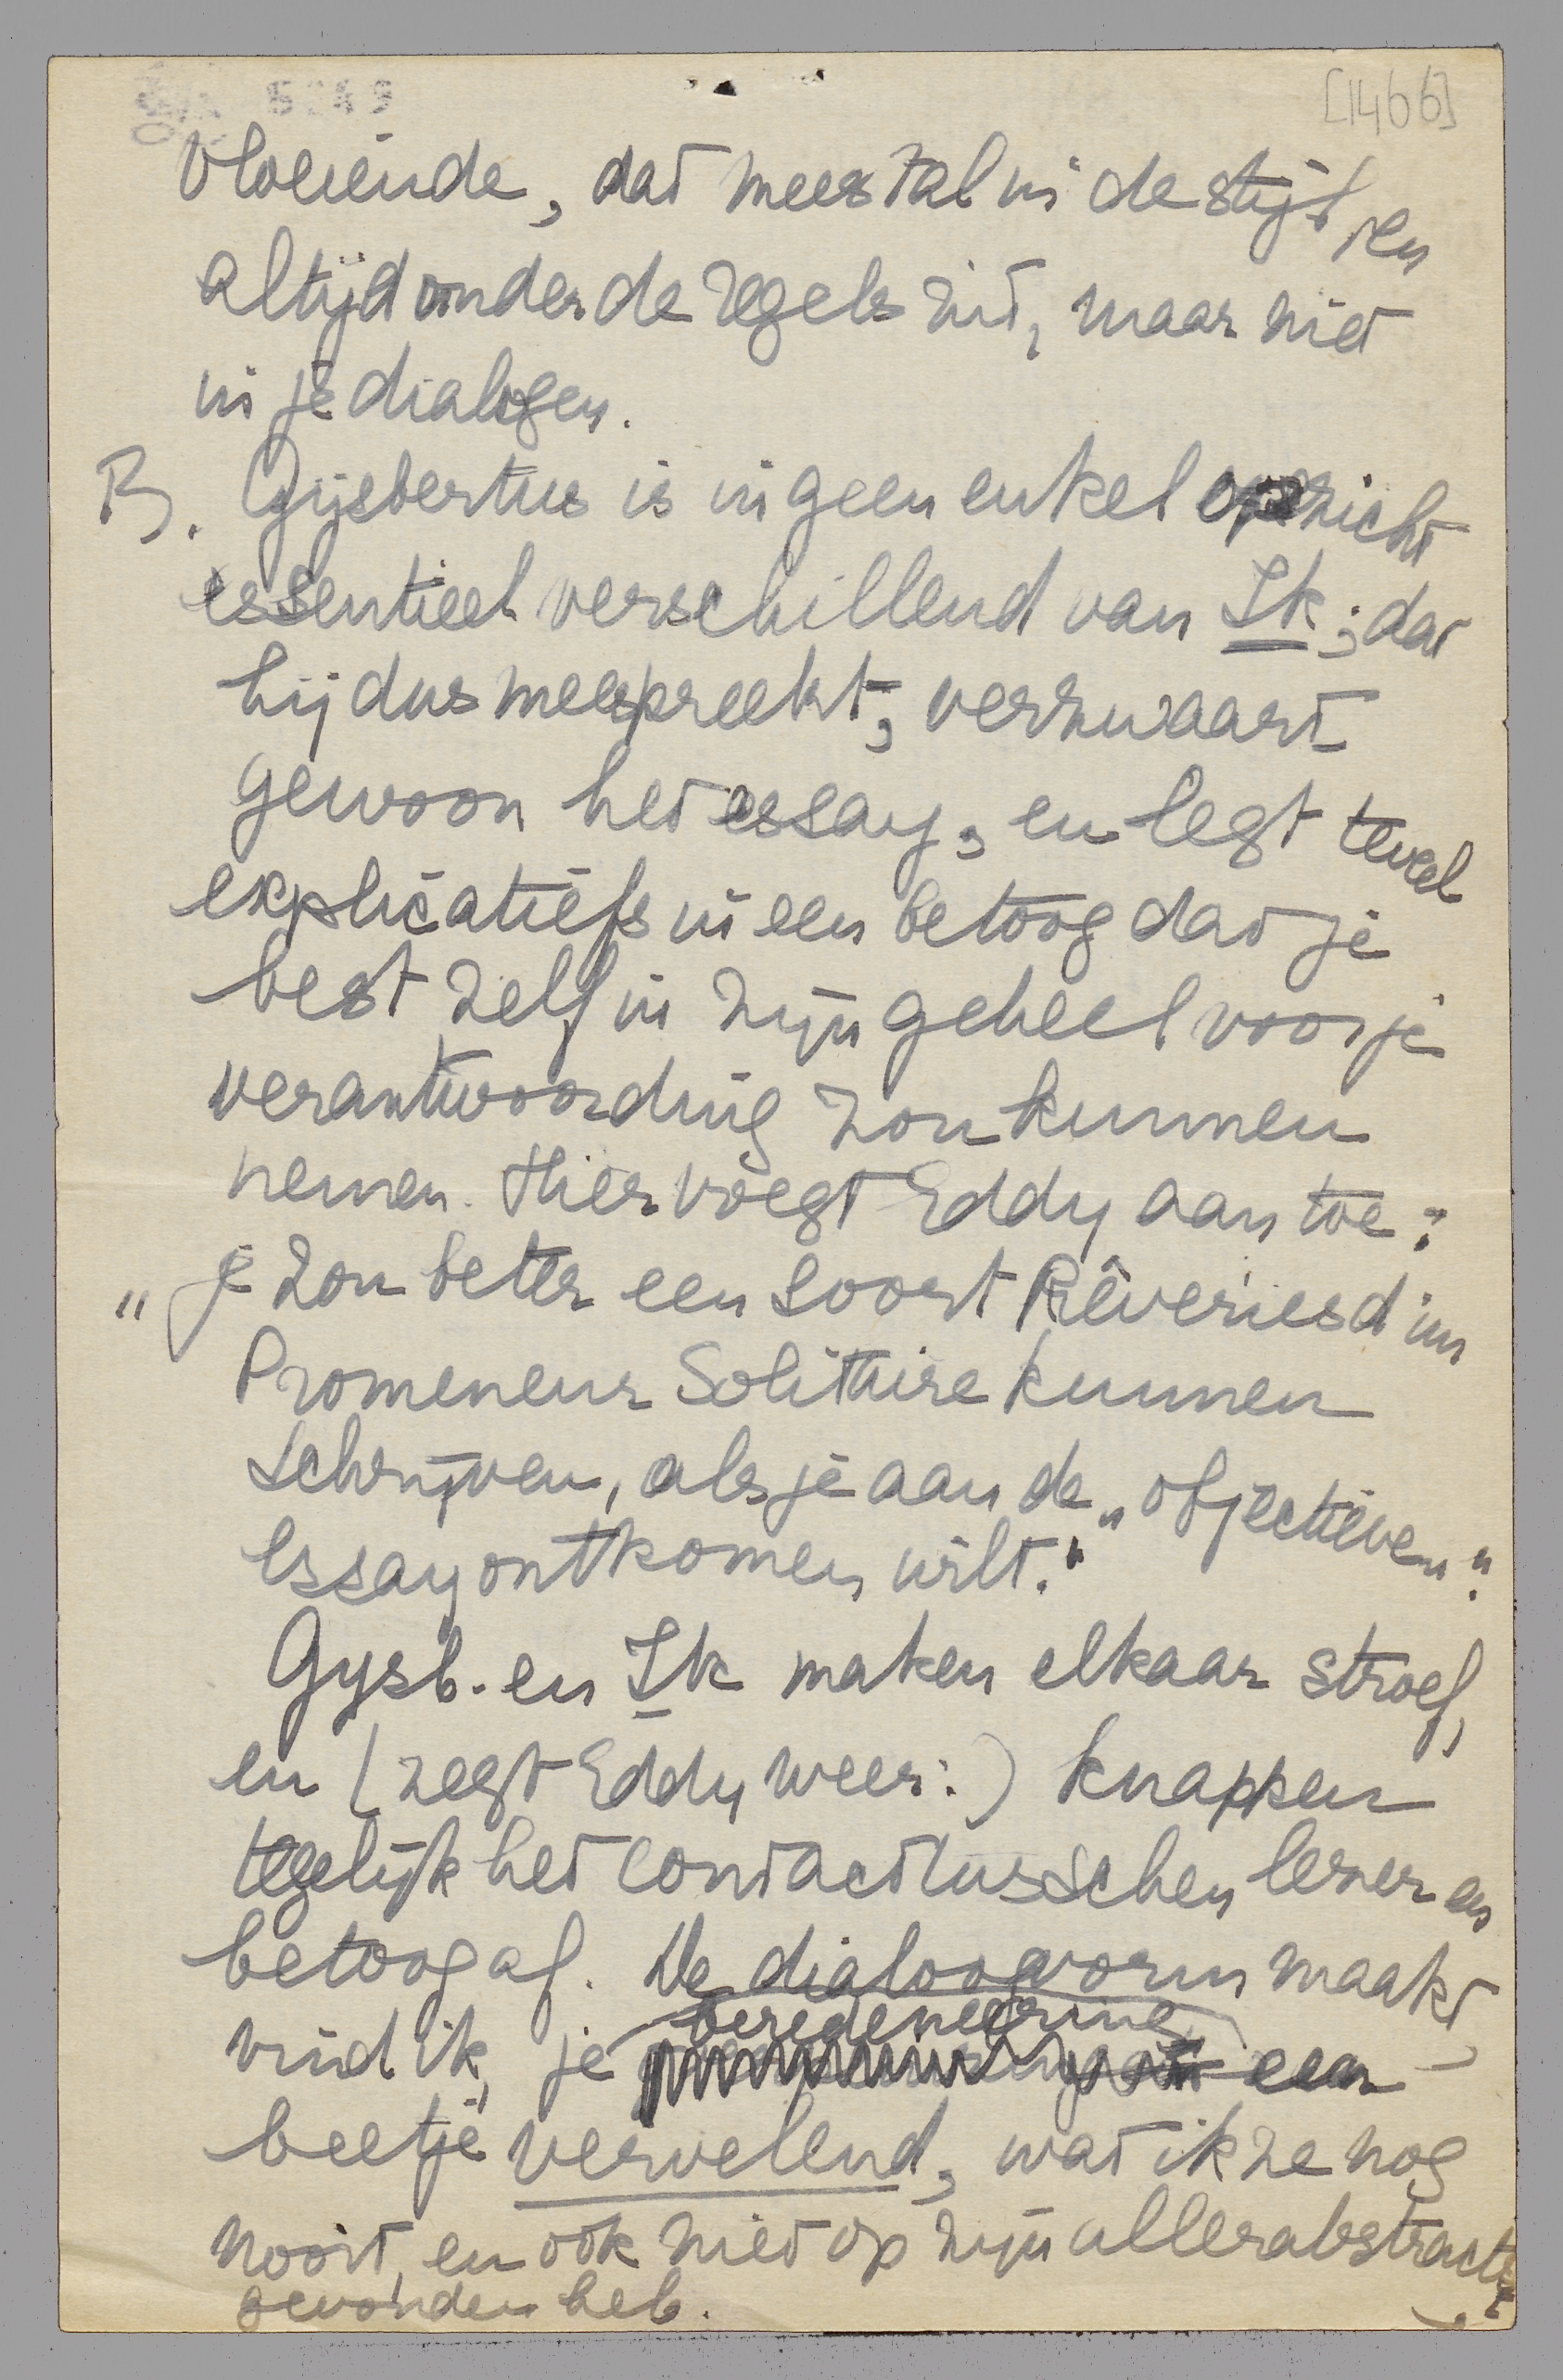 [1466]
vloeiende, dat meestal in de stijl, en
altijd onder de regels zit, maar niet
in je dialogen.
B. Gijsbertus is in geen enkel opzicht
essentieel verschillend van Ik; dat
hij dus meespreekt, verzwaart
gewoon het essay, en legt teveel
explicatiefs in een betoog dat je
best zelf in zijn geheel voor je
verantwoording zou kunnen
nemen. Hier voegt Eddy aan toe:
"je zou beter een soort Rêveries d'un
Promeneur Solitaire kunnen
schrijven, als je aan de „objectieven"
essay ontkomen wilt."
Gysb. en Ik maken elkaar stroef,
en (zegt Eddy weer:) knappen
tegelijk het contact tusschen lezer en
betoog af. De dialoogvorm maakt
vind ik, je beredeneering een
beetje vervelend, wat ik ze nog
nooit, en ook niet op zijn allerabstractst
gevonden heb.